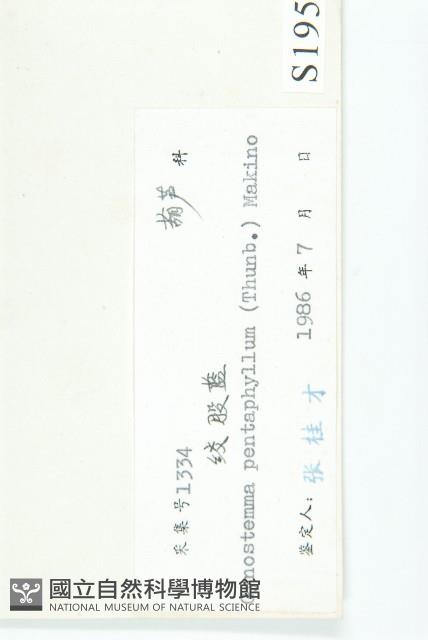 S195
采集号1334 葫芦 科
绞股蓝
nostemma pentaphyllum (Thunb.) Makino
鉴定人: 张桂才 1986 年 7 月 日
國立自然科學博物館
NATIONAL MUSEUM OF NATURAL SCIENCE